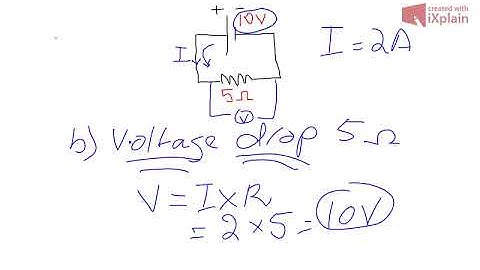 created with
iXplain
+ -
10V
I
I = 2A
5Ω
V
b) Voltage drop 5Ω
V = I × R
= 2 × 5 = 10V